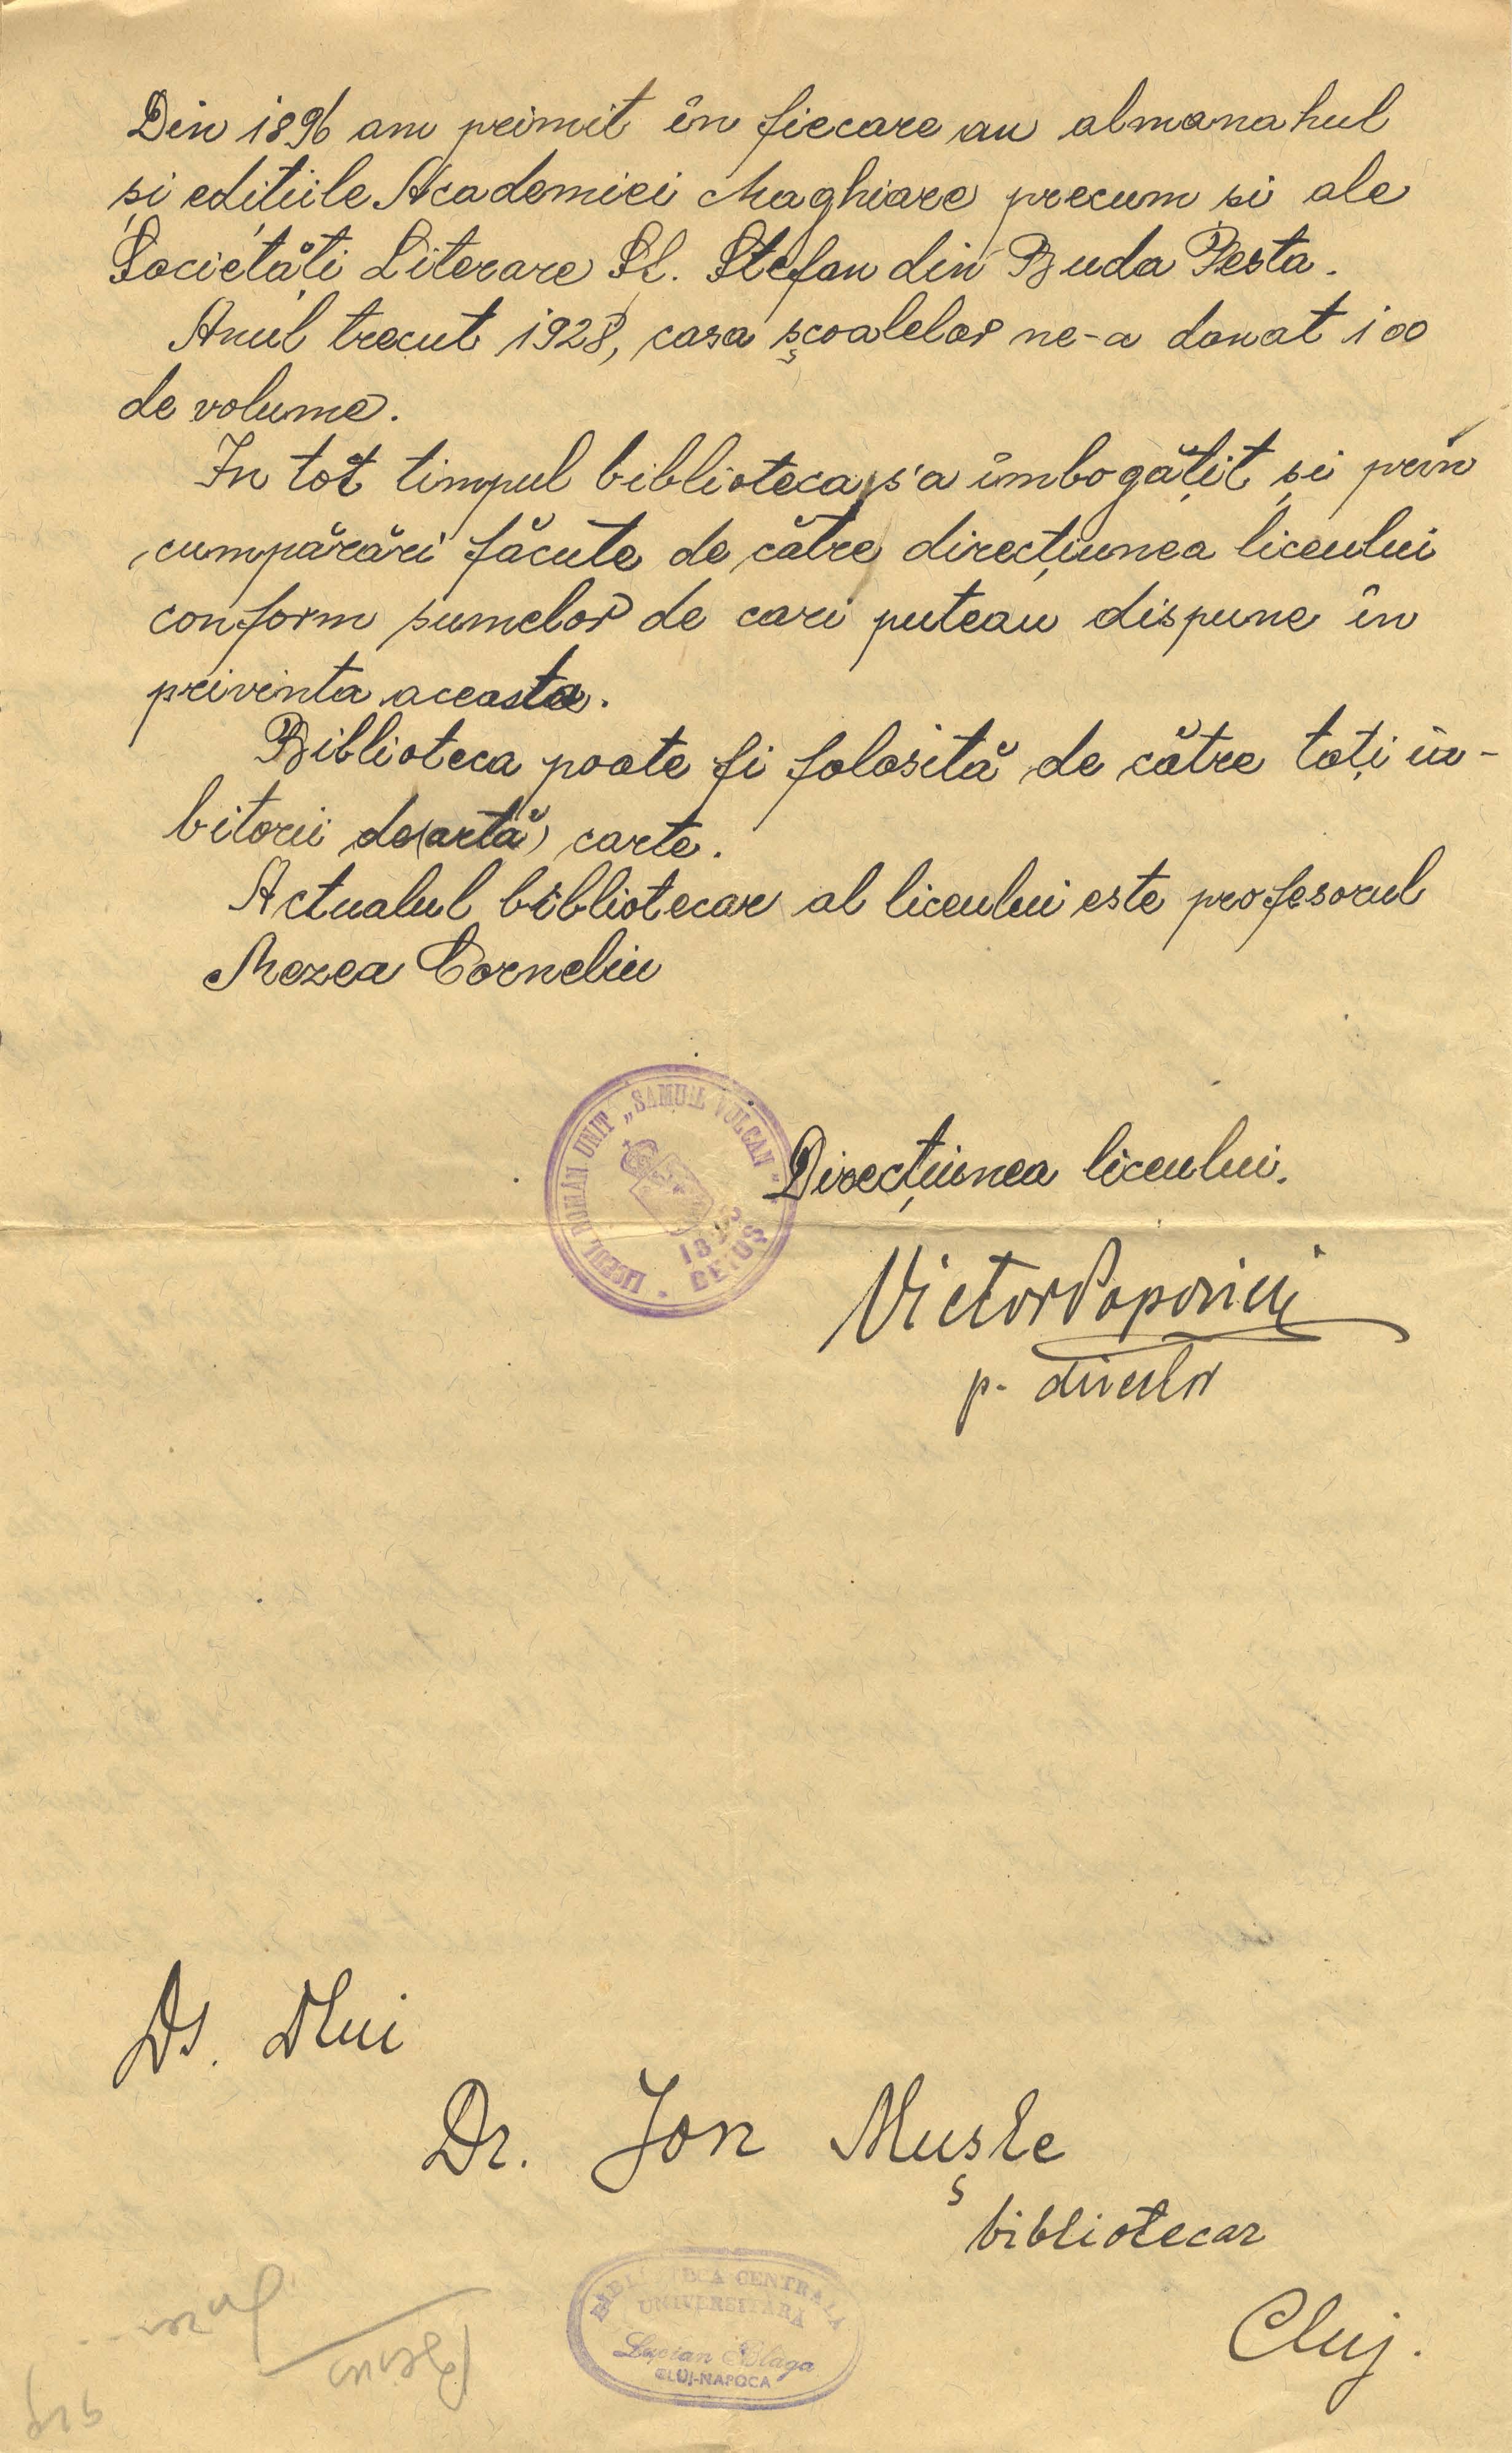 Din 1896 am primit în fiecare an almanahul
și editiile Academiei Maghiare precum si ale
Societăți Literare Sf. Stefan din Buda Pesta.
Anul trecut 1928, casa școalelor ne-a donat 100
de volume.
In tot timpul biblioteca s'a îmbogățit și prin
cumpărări făcute de către direcțiunea liceului
conform sumelor de cari puteau dispune în
privinta aceasta.
Biblioteca poate fi folosită de către toți iu-
bitorii de (artă) carte.
Actualul bibliotecar al liceului este profesorul
Mezea Corneliu
LICEUL ROMÂN UNIT „SAMUIL VULCAN"
BEIUȘ
Direcțiunea liceului.
Victor Popovici
p. director
Ds. Dlui
Dr. Ion Mușle
bibliotecar
Cluj.
BIBLIOTECA CENTRALA
UNIVERSITARA
Lucian Blaga
CLUJ-NAPOCA